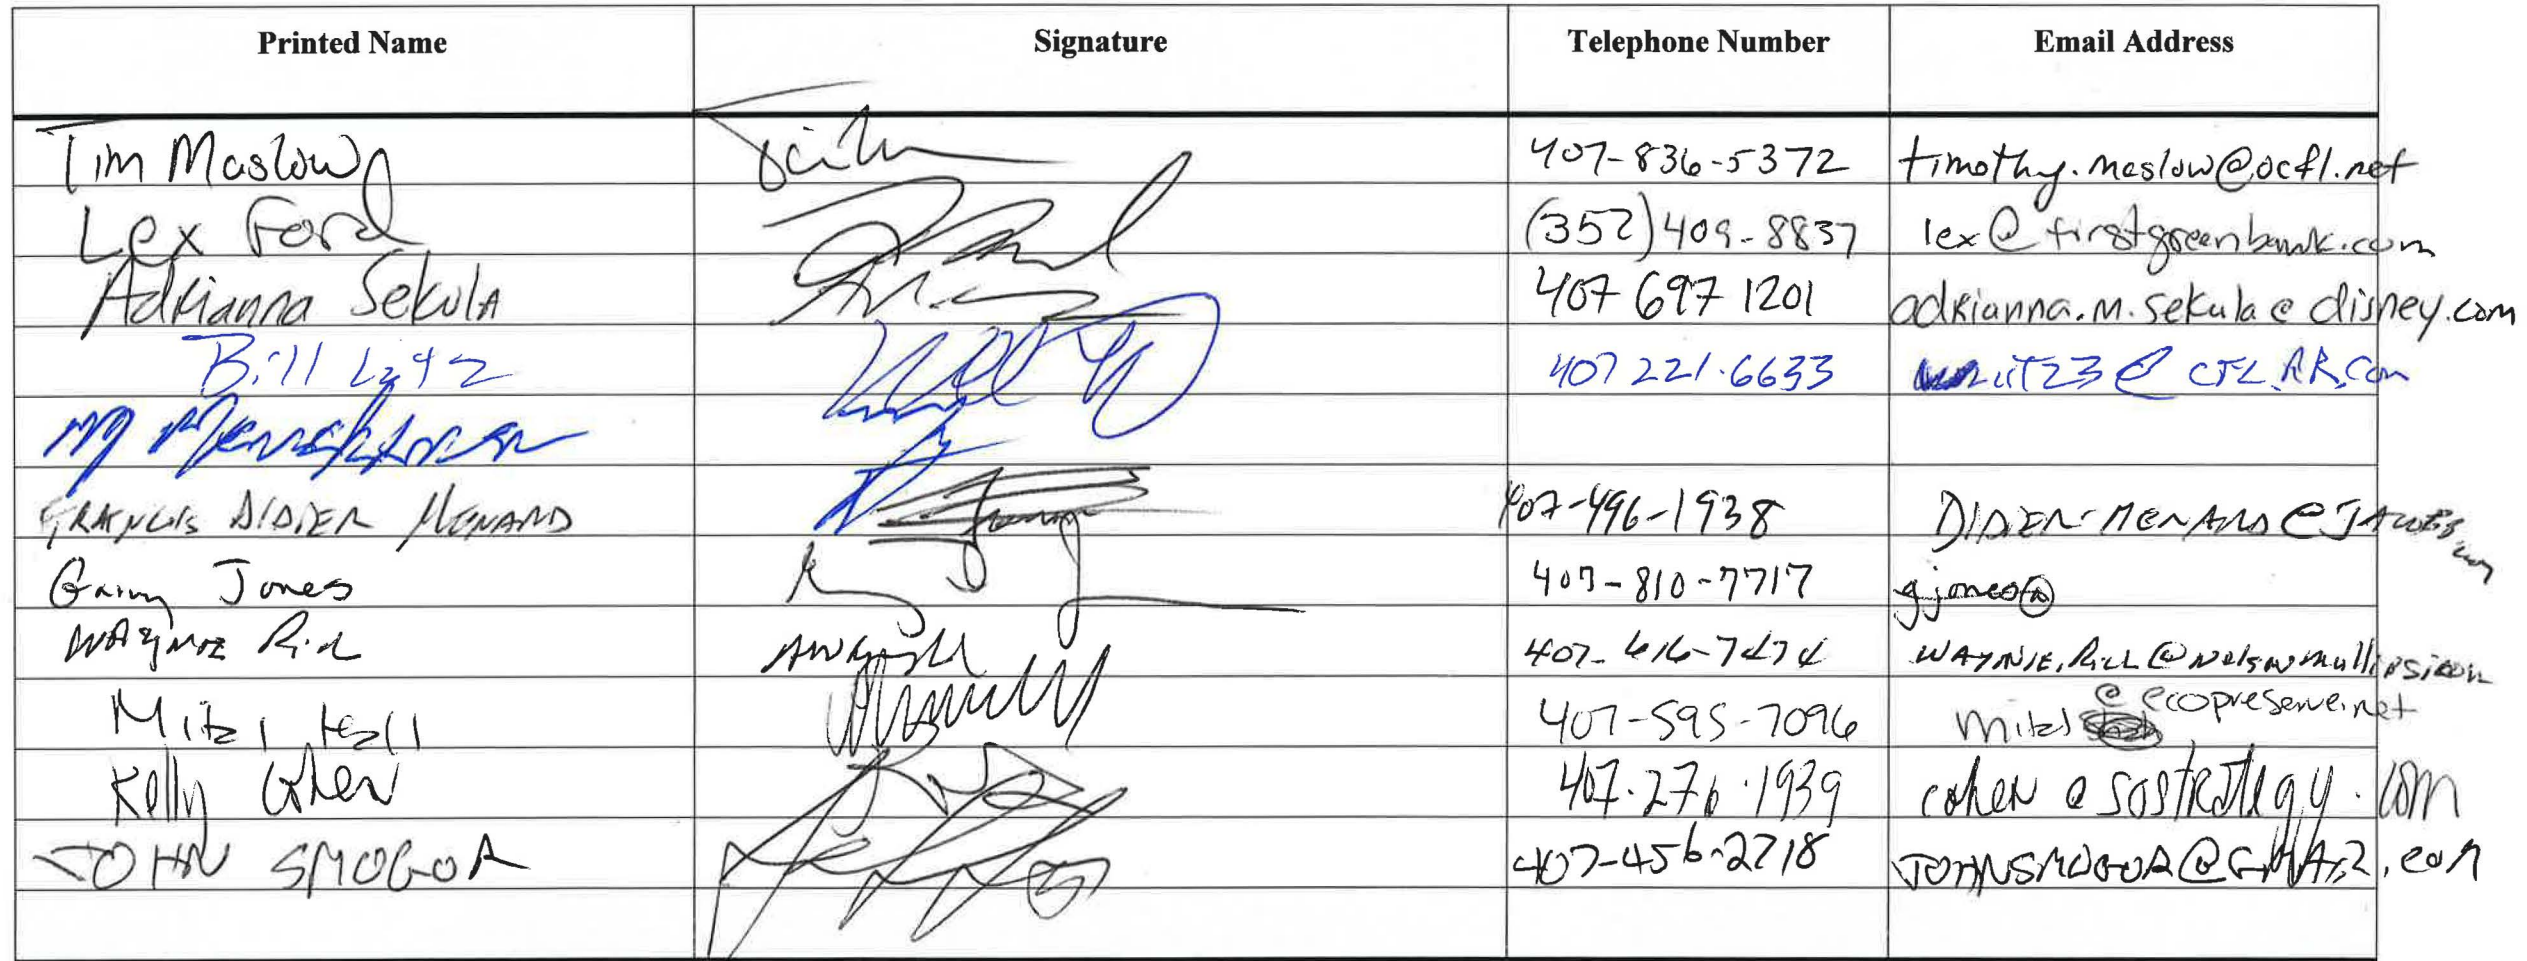 Printed Name Signature Telephone Number Email Address
Tim Maslow 407-836-5372 timothy.maslow@ocfl.net
Lex Ford (352) 409-8837 lex@firstgreenbank.com
Adrianna Sekula 407 697 1201 adrianna.m.sekula@disney.com
Bill Litz 407 221.6633 @CFL.RR.Com
M
FRANCIS DIDIER MENARD 407-496-1938 DIDIER.MENARD@JACOBS.com
Jones 407-810-7717 gjones@
WAYNE Rich 407- WAYNE.RICH@nelsonmullins.com
Mitzi Hall 407-595-7096 mitzi @ecopreserve.net
Kelly Cohen 407.276.1939 cohen@sostrategy.com
JOHN SMOGOR 407-456-2718 JOHNSMOGOR@GMAIL.COM